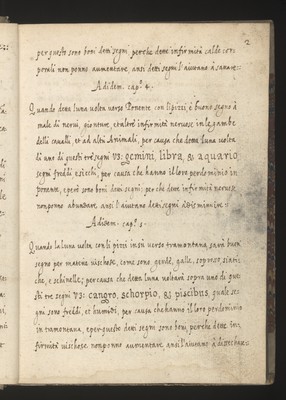 2
per questo sono boni detti segni, perche dette infirmità calde cor
porali non ponno aumentare, ansi detti segni l'aiutano à sanare~
Adidem. cap.° 4.
Quando detta luna volta verso Ponente con li pizzi è buono segno à
male di nervi, pionture, et altre infirmità nervose in le gambe
delli cavalli, et ad altri Animali, per causa che detta luna volta
di uno di questi tre segni vz: gemini, libra, & aquario,
segni freddi e sicchi, per causa che hanno il loro perdominio in
ponente, e però sono boni detti segni: perche dette infirmità nervose
non ponno abundare, ansi l'aiutano detti segni à disminuire~
Adidem. cap.° 5.
Quando la luna volta con li pizzi insù verso tramontana, sarà buon
segno per materie vischose, come sono gerde, galle, soprossi, sciati
che, e schinelle; per causa che detta luna voltarà sopra uno di que
sti tre segni vz: cangro, schorpio, & piscibus, quale se
gni sono freddi, et humidi, per causa che hanno il loro perdominio
in tramontana, e per queste detti segni sono boni, perche dette in
firmità vischose non ponno aumentare, ansi l'aiutano à disecchar